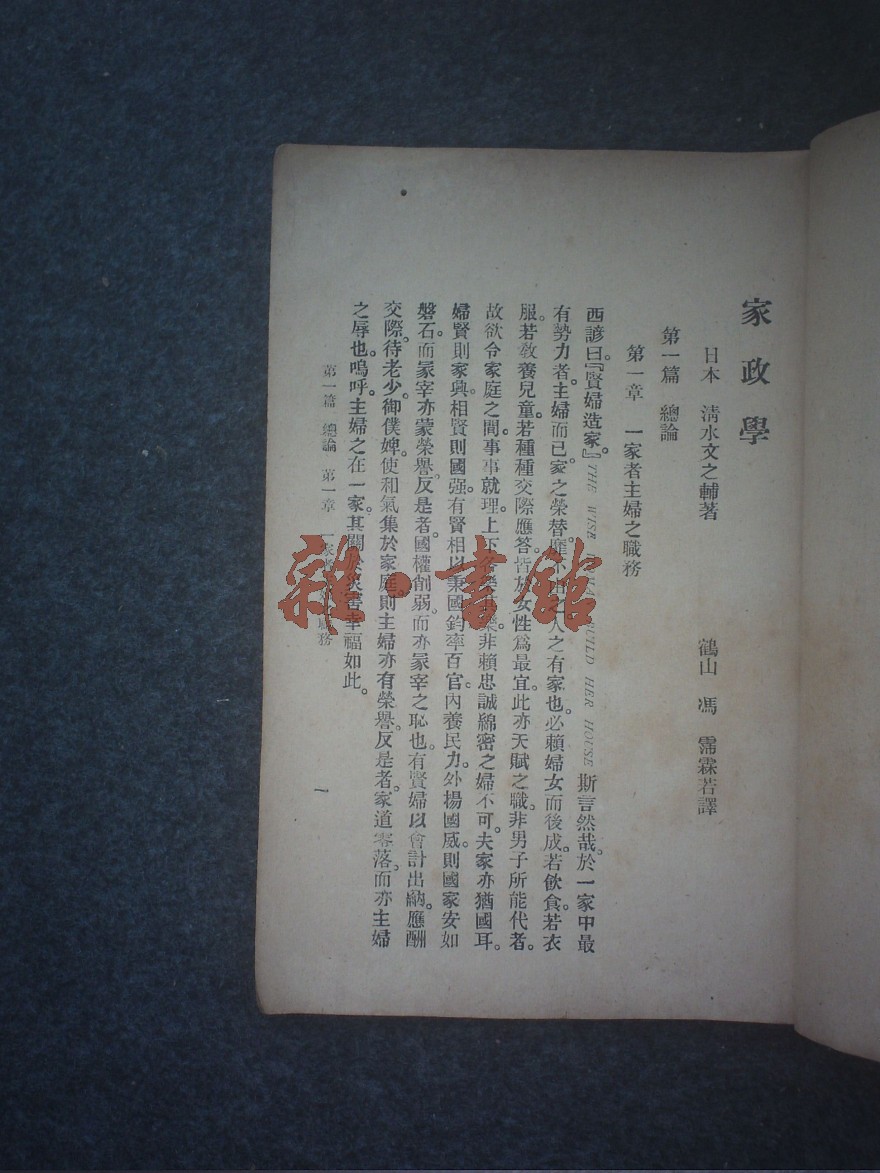 家政學
日本 清水文之輔著 鶴山 馮 霈霖若譯
第一篇 總論
第一章 一家者主婦之職務
西諺曰。『賢婦造家。』THE WISE BUILD HER HOUSE 斯言然哉。於一家中最
有勢力者。主婦而已。家之榮替。靡不由之。人之有家也。必賴婦女而後成。若飲食。若衣
服。若教養兒童。若種種交際應答。皆於女性爲最宜。此亦天賦之職。非男子所能代者。
故欲令家庭之間。事事就理。上下各樂其業。非賴忠誠綿密之婦不可。夫家亦猶國耳。
婦賢則家興。相賢則國强。有賢相以秉國鈞。率百官。內養民力。外揚國威。則國家安如
磐石。而冢宰亦蒙榮譽。反是者。國權削弱。而亦冢宰之恥也。有賢婦以會計出納。應酬
交際。待老少。御僕婢。使和氣集於家庭。則主婦亦有榮譽。反是者。家道零落。而亦主婦
之辱也。嗚呼。主婦之在一家。其關於災害幸福如此。
第一篇 總論 第一章 一家者主婦之職務
一
雜·書館